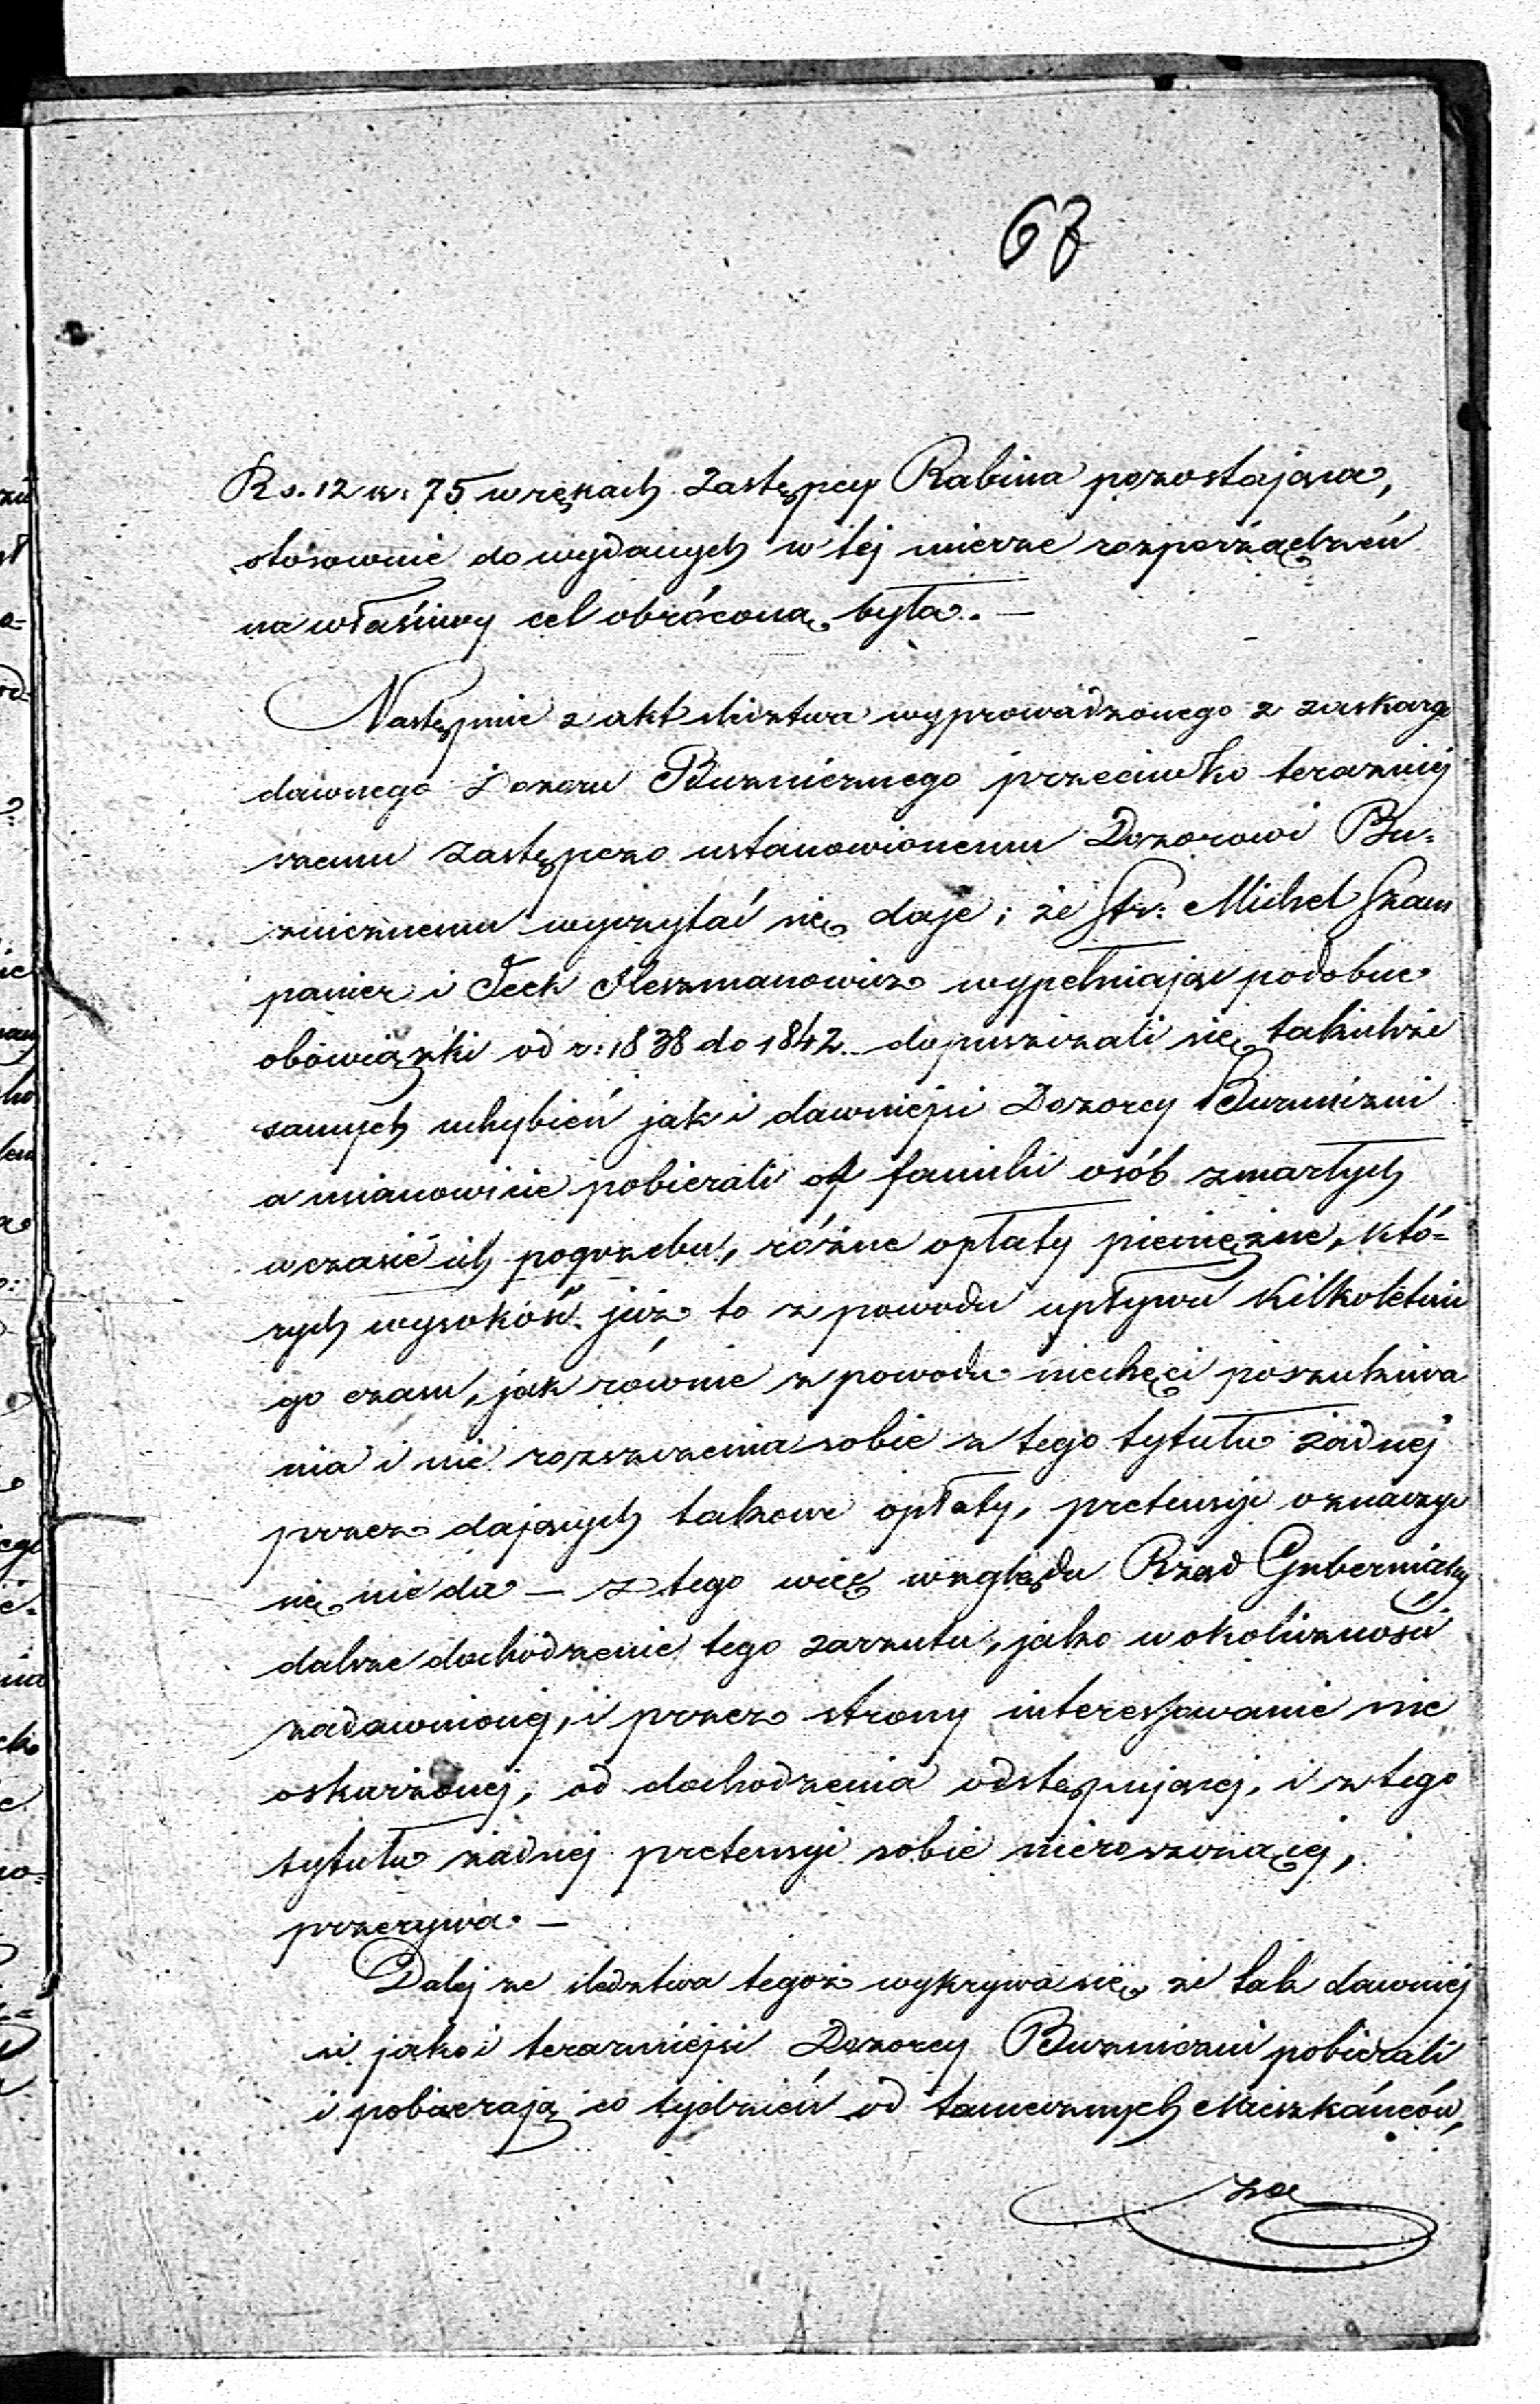 67
Rs. 12 k: 75 w rękach Zastępcy Rabina pozostająca,
stosownie do wydanych w tej mierze rozporządzeń
na właściwy cel obróconą była. —
Następnie z akt śledztwa wyprowadzonego z zaskarg
dawnego Dozoru Bużnicznego przeciwko teraźniej
szemu zastępczo ustanowionemu Dozorowi Bu=
żnicznemu wyczytać się daje; że Str: Michel Szam
panier i Icek Herszmanowicz wypełniając podobne
obowiązki od r: 1838 do 1842 dopuszczali się takichże
samych uchybień jak i dawniejsi Dozorcy Bużniczni
a mianowicie pobierali od familii osób zmarłych
w czasie ich pogrzebu, różne opłaty pieniężne, któ=
rych wysokość już to z powodu upływu kilkoletnie
go czasu, jak równie z powodu niechęci poszukiwa
nia i nie rozszczenia sobie z tego tytułu żadnej
przez dających takowe opłaty, pretensyi oznaczyć
się nie da — z tego więc względu Rząd Gubernialny
dalsze dochodzenie tego zarzutu, jako w okoliczności
zadawnionej, i przez strony interessowanie nie
oskarżonej, od dochodzenia odstępującej, i z tego
tytułu żadnej pretensyi sobie nieroszczącej,
przerywa. —
Dalej ze śledztwa tegoż wykrywa się, że tak dawniej
si jako i teraźniejsi Dozorcy Bużniczni pobierali
i pobierają co tydzień od tamecznych Mieszkańców,
za